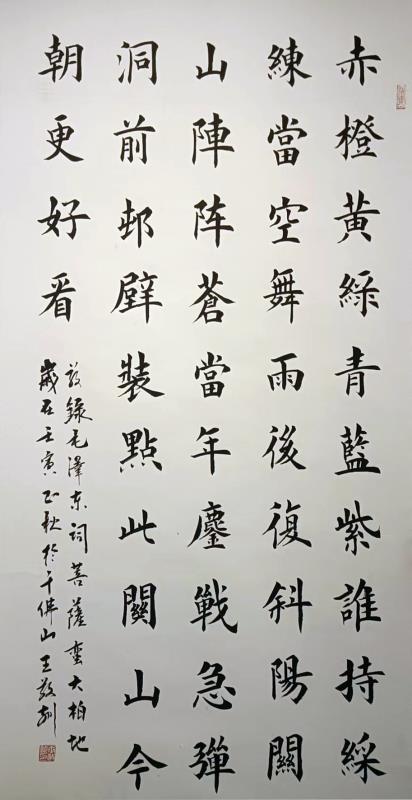 赤橙黃綠青藍紫誰持綵
練當空舞雨後復斜陽關
山陣阵蒼當年鏖戰急彈
洞前邨壁裝點此關山今
朝更好看
敬錄毛澤東詞菩薩蛮大柏地
歲在壬寅正秋於千佛山王敬